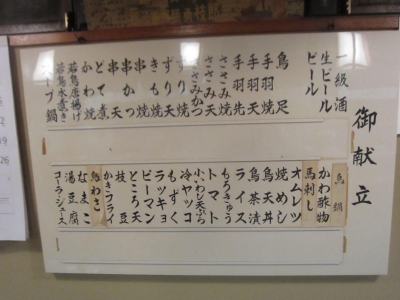 御献立
一級酒
生ビール
ビール
鳥足
手羽焼
手羽天
手羽先
ささみ焼
ささみ天
ささみかつ
すり焼
すり天
きも焼
串焼
串かつ
串天
どて煮
かわ焼
若鳥唐揚げ
若鳥水煮き
スープ鍋
鳥鍋
かわ酢物
馬刺し
オムレツ
焼めし
鳥天丼
鳥茶漬
ライス
もろきゅう
トマト
小いわし天ぷら
冷ヤッコ
もずく
ラッキョ
ピーマン
ところ天
枝豆
かきフライ
鳥わさ
なまこ
湯豆腐
コーラ・ジュース